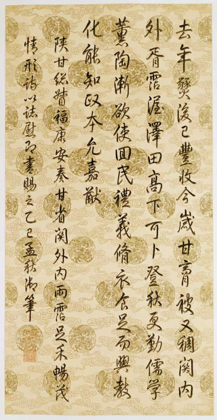 去年後已豐收今歲甘膏被又稠關內
外胥霑渥澤田高下可卜登秋更勤儒學
薰陶漸欲使回民禮義脩衣食足而興教
化能知政本允嘉猷
陝甘總督福康安奏甘省關外內雨霑足禾暢茂
情形詩以誌慰即書賜之乙巳孟秋御筆